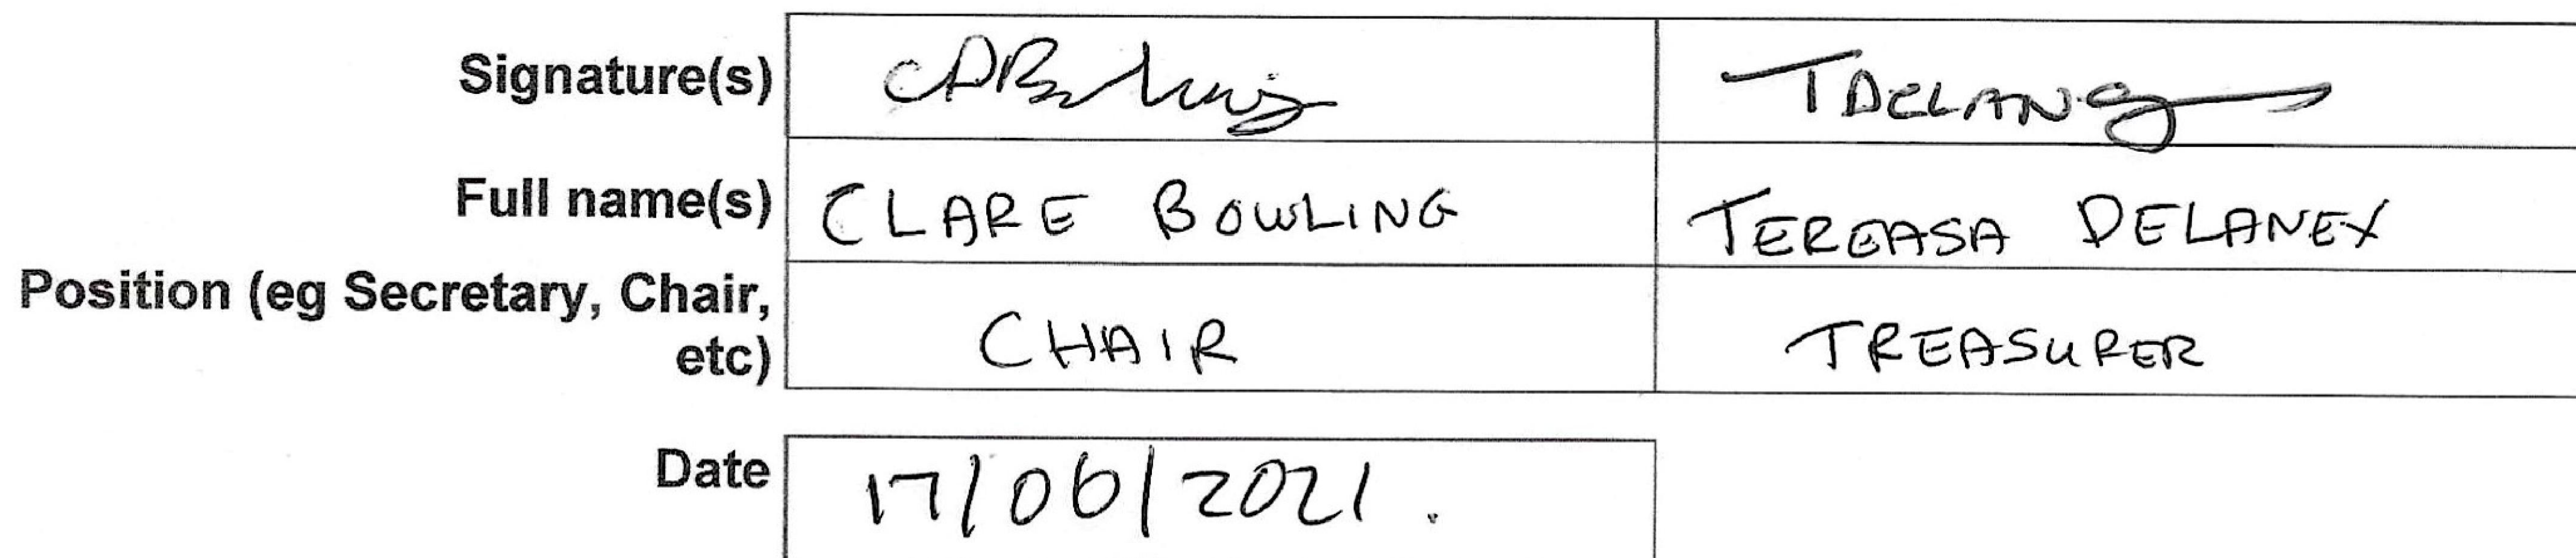 Signature(s) CABowling TDELANEY
Full name(s) CLARE BOWLING TEREASA DELANEY
Position (eg Secretary, Chair,
etc) CHAIR TREASURER
Date 17/06/2021.